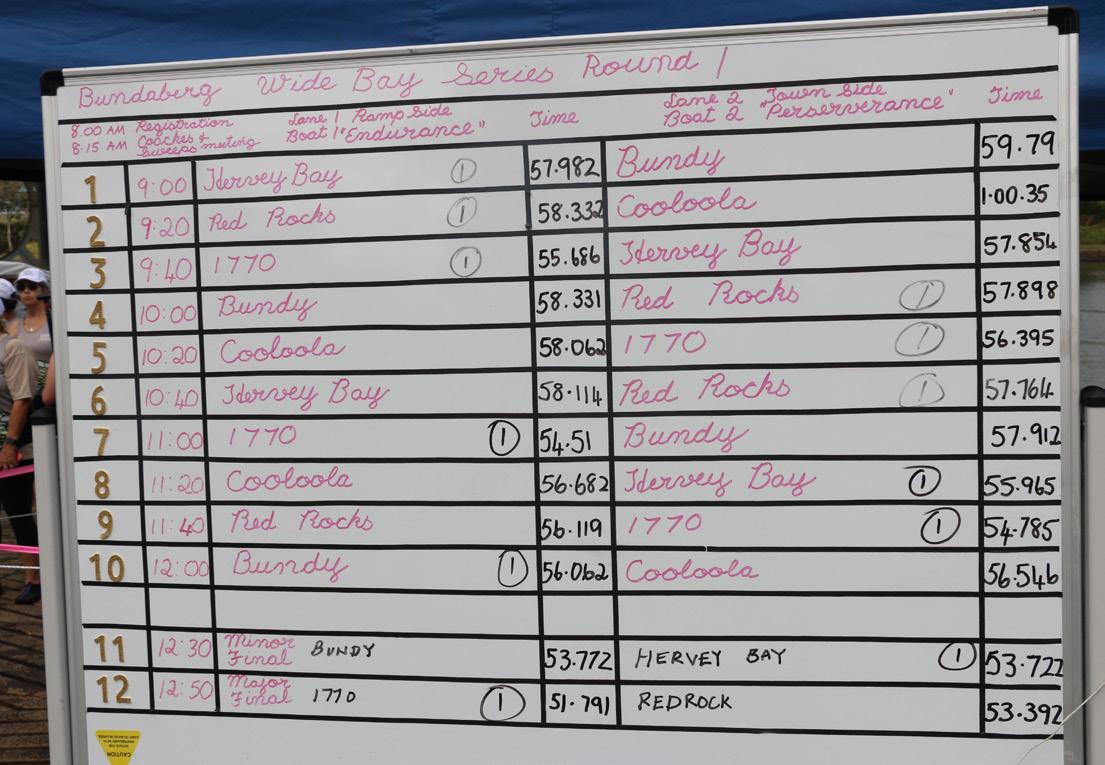 Bundaberg Wide Bay Series Round 1
8.00 AM Registration Lane 1 Ramp Side Time Lane 2 "Town Side Time
8:15 AM Coaches & Sweeps meeting Boat 1 "Endurance" Boat 2 Perserverance"
1 9:00 Hervey Bay 1 57.982 Bundy 59.79
2 9:20 Red Rocks 1 58.332 Cooloola 1.00.35
3 9:40 1770 1 55.686 Hervey Bay 57.854
4 10:00 Bundy 58.331 Red Rocks 1 57.898
5 10:20 Cooloola 58.062 1770 1 56.395
6 10:40 Hervey Bay 58.114 Red Rocks 1 57.764
7 11:00 1770 1 54.51 Bundy 57.912
8 11:20 Cooloola 56.682 Hervey Bay 1 55.965
9 11:40 Red Rocks 56.119 1770 1 54.785
10 12:00 Bundy 1 56.062 Cooloola 56.546
11 12:30 Minor Final BUNDY 53.772 HERVEY BAY 1 53.722
12 12:50 Major Final 1770 1 51.791 REDROCK 53.392
CAUTION